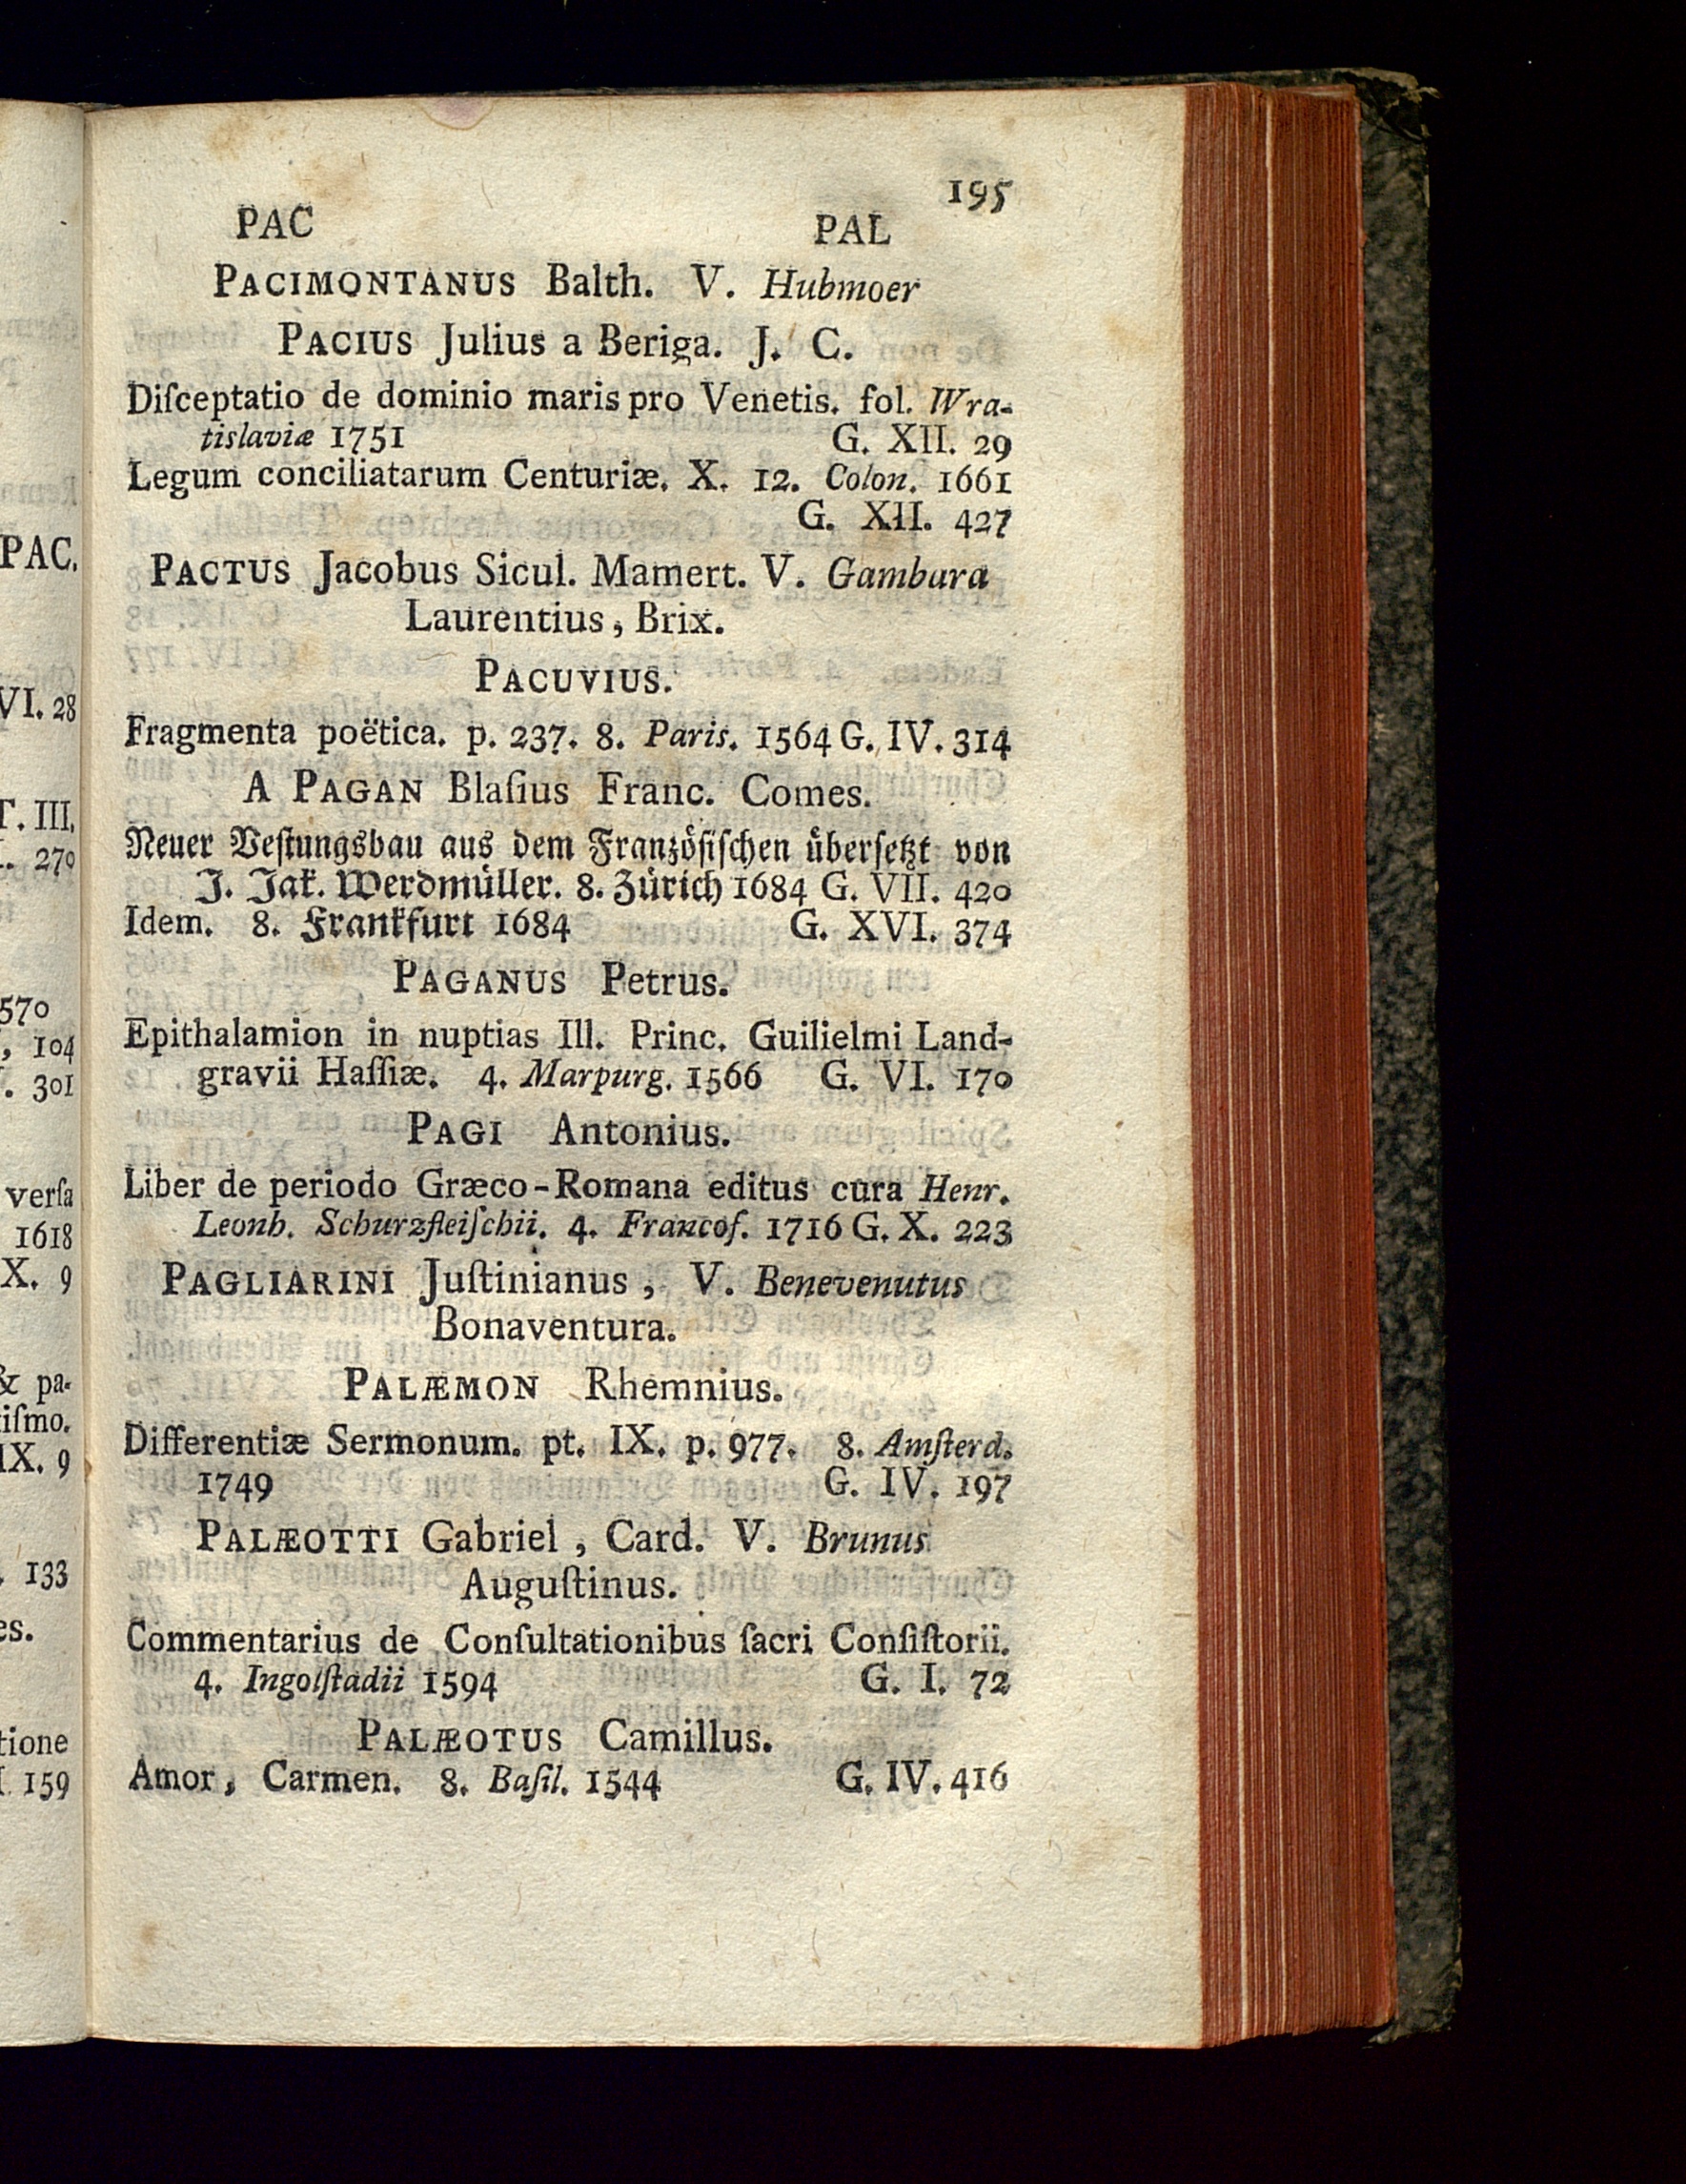 195
PAC PAL
PACIMONTANUS Balth. V. Hubmoer
PACIUS Julius a Beriga. J. C.
Diſceptatio de dominio maris pro Venetis. fol. Wra-
tislaviæ 1751 G. XII. 29
Legum conciliatarum Centuriæ. X. 12. Colon. 1661
G. XII. 427
PACTUS Jacobus Sicul. Mamert. V. Gambara
Laurentius, Brix.
PACUVIUS.
Fragmenta poëtica. p. 237. 8. Paris. 1564 G. IV. 314
A PAGAN Blaſius Franc. Comes.
Neuer Veſtungsbau aus dem Franzöſiſchen überſetzt von
J. Jak. Werdmüller. 8. Zürich 1684 G. VII. 420
Idem. 8. Frankfurt 1684 G. XVI. 374
PAGANUS Petrus.
Epithalamion in nuptias Ill. Princ. Guilielmi Land-
gravii Haſſiæ. 4. Marpurg. 1566 G. VI. 170
PAGI Antonius.
Liber de periodo Græco-Romana editus cura Henr.
Leonh. Schurzfleiſchii. 4. Francof. 1716 G. X. 223
PAGLIARINI Juſtinianus, V. Benevenutus
Bonaventura.
PALÆMON Rhemnius.
Differentiæ Sermonum. pt. IX. p. 977. 8. Amſterd.
1749 G. IV. 197
PALÆOTTI Gabriel, Card. V. Brunus
Auguſtinus.
Commentarius de Conſultationibus ſacri Conſiſtorii.
4. Ingolſtadii 1594 G. I. 72
PALÆOTUS Camillus.
Amor, Carmen. 8. Baſil. 1544 G. IV. 416
PAC.
VI. 28
T. III.
270
570
104
301
verſa
1618
X. 9
& pa-
tiſmo.
IX. 9
133
es.
tione
159